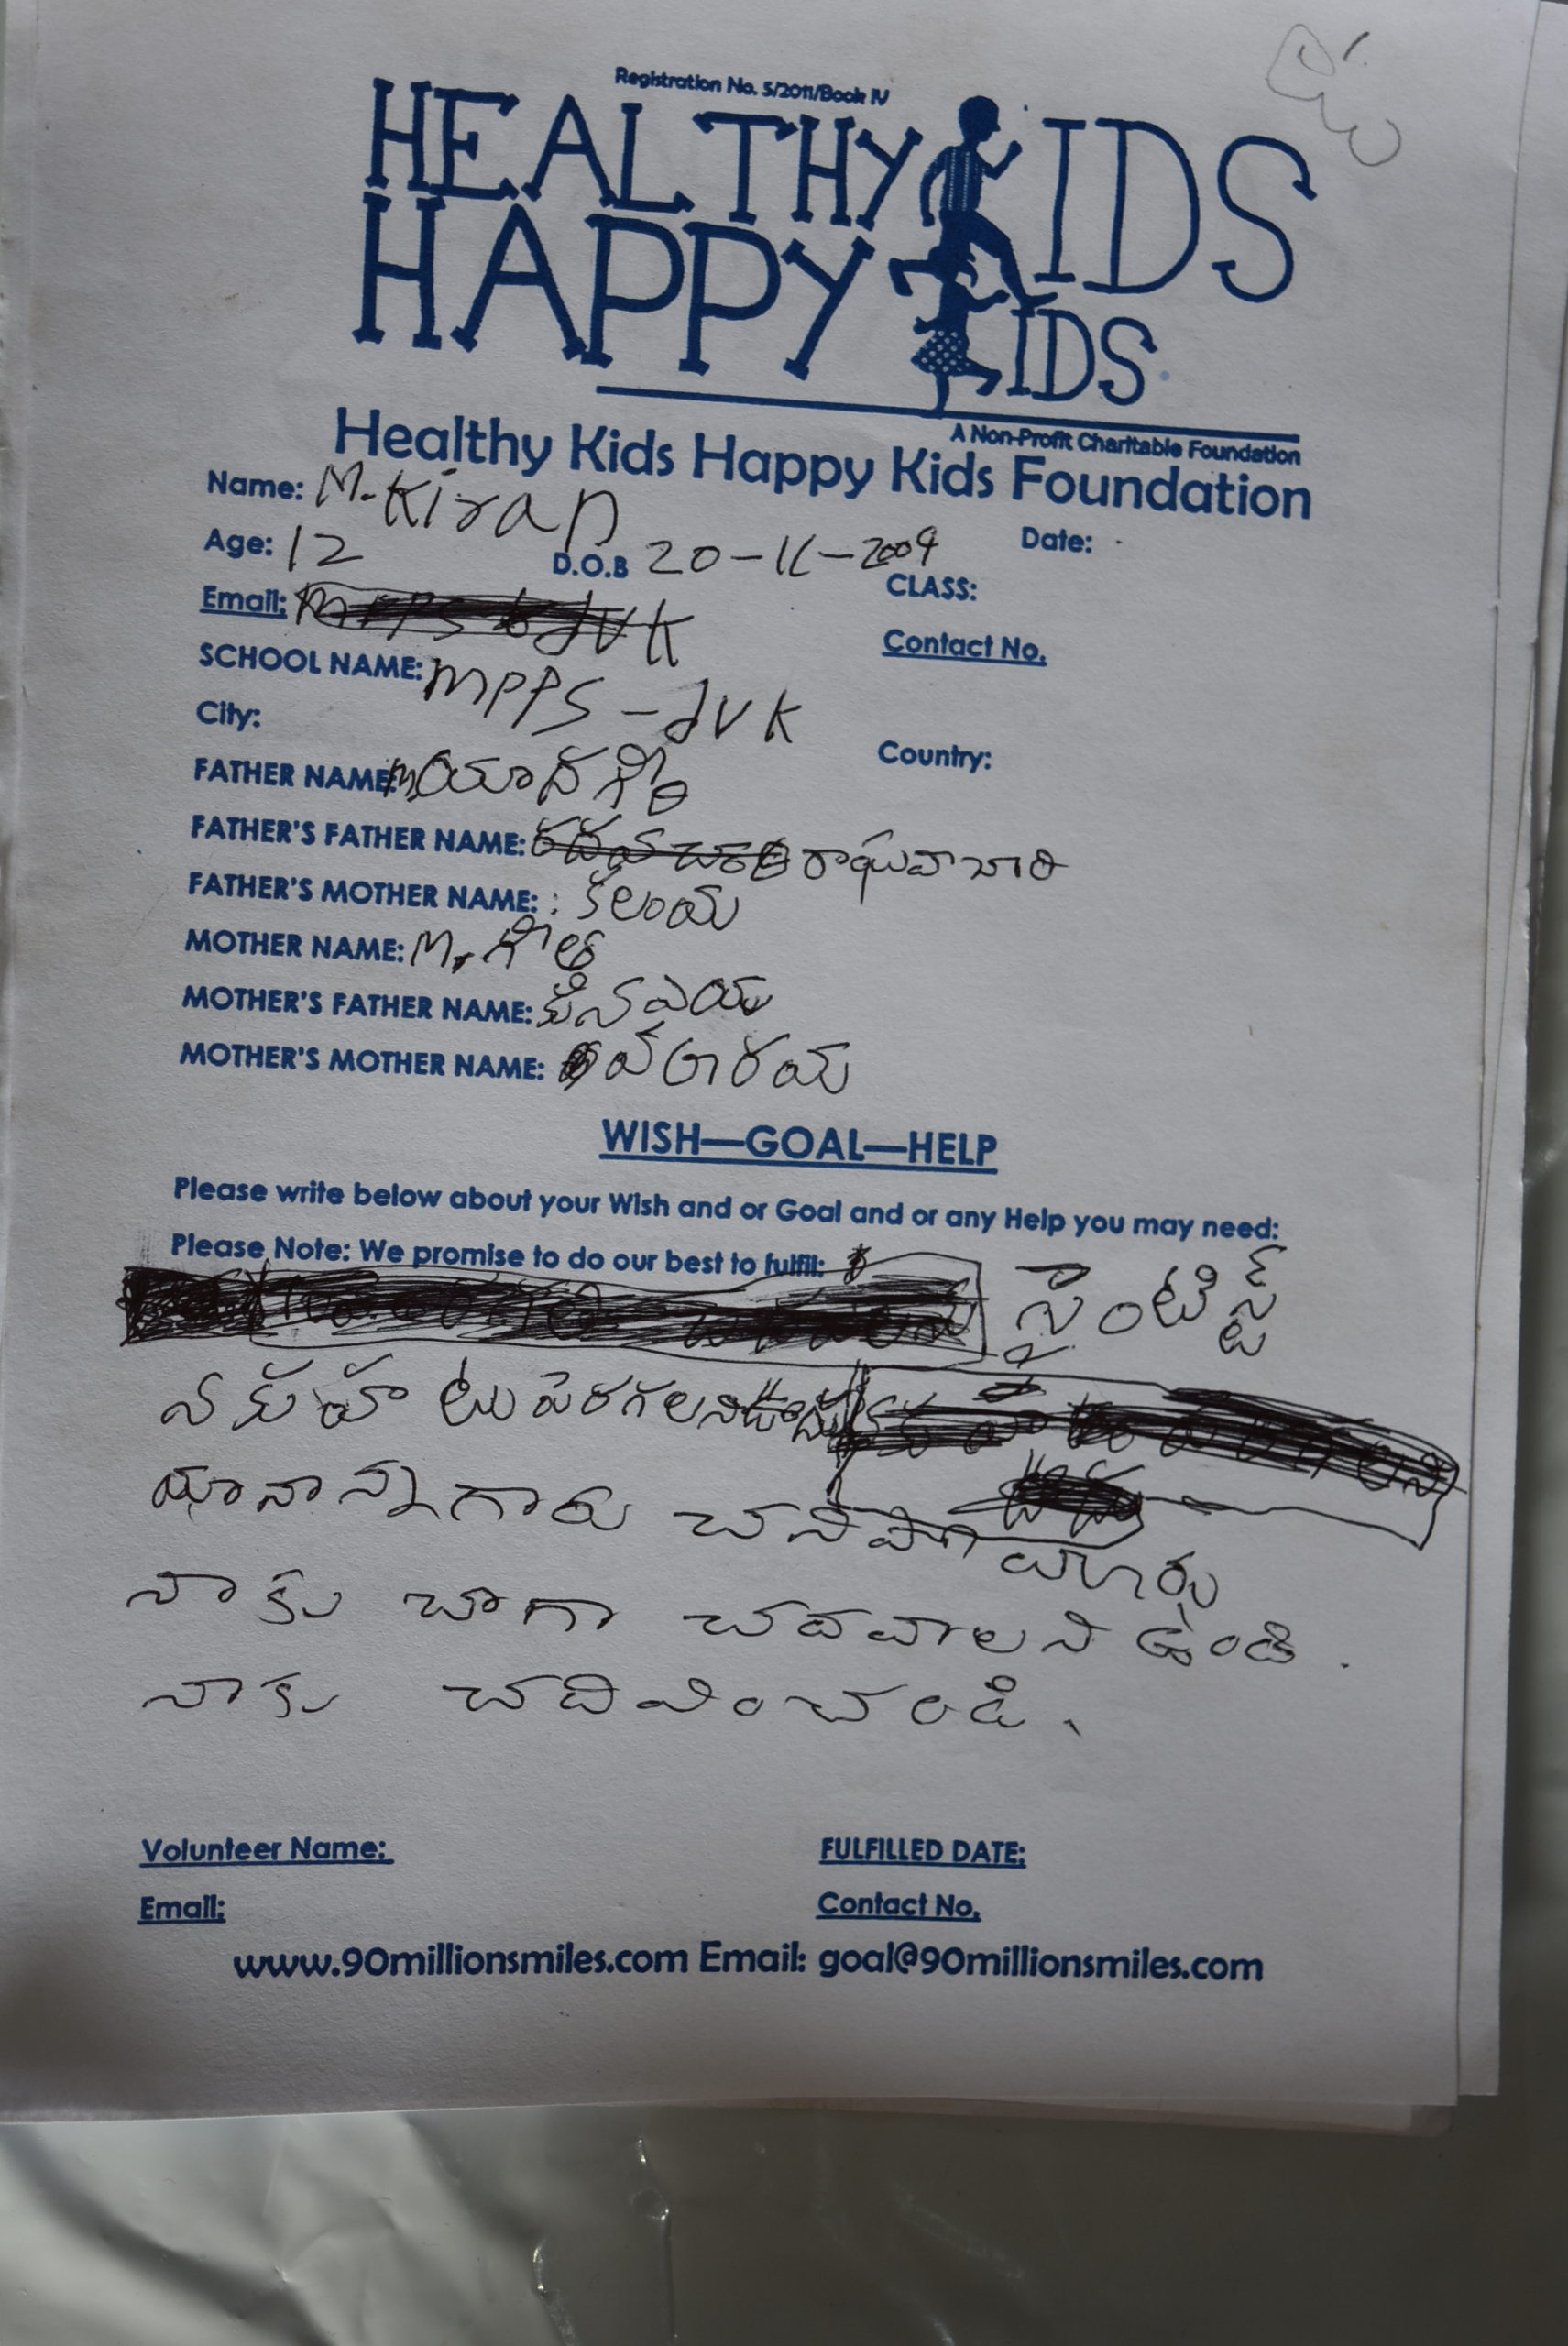 Registration No. 5/2011/Book IV
HEALTHY KIDS
HAPPY KIDS
A Non-Profit Charitable Foundation
Healthy Kids Happy Kids Foundation
Name: M. Kiran
Date:
Age: 12 D.O.B 20-11-2009
CLASS:
Email:
Contact No.
SCHOOL NAME: MPPS - JVK
City:
Country:
FATHER NAME: M యాదగిరి
FATHER'S FATHER NAME: రాఘవాచారి
FATHER'S MOTHER NAME: :
MOTHER NAME: M. గీత
MOTHER'S FATHER NAME:
MOTHER'S MOTHER NAME:
WISH—GOAL—HELP
Please write below about your Wish and or Goal and or any Help you may need:
Please Note: We promise to do our best to fulfil:
సైంటిస్ట్
నాన్నగారు చనిపోయారు
నాకు చాగా చదవాలని ఉంది.
నాకు చదివించండి.
Volunteer Name:
FULFILLED DATE:
Email:
Contact No.
www.90millionsmiles.com Email: goal@90millionsmiles.com